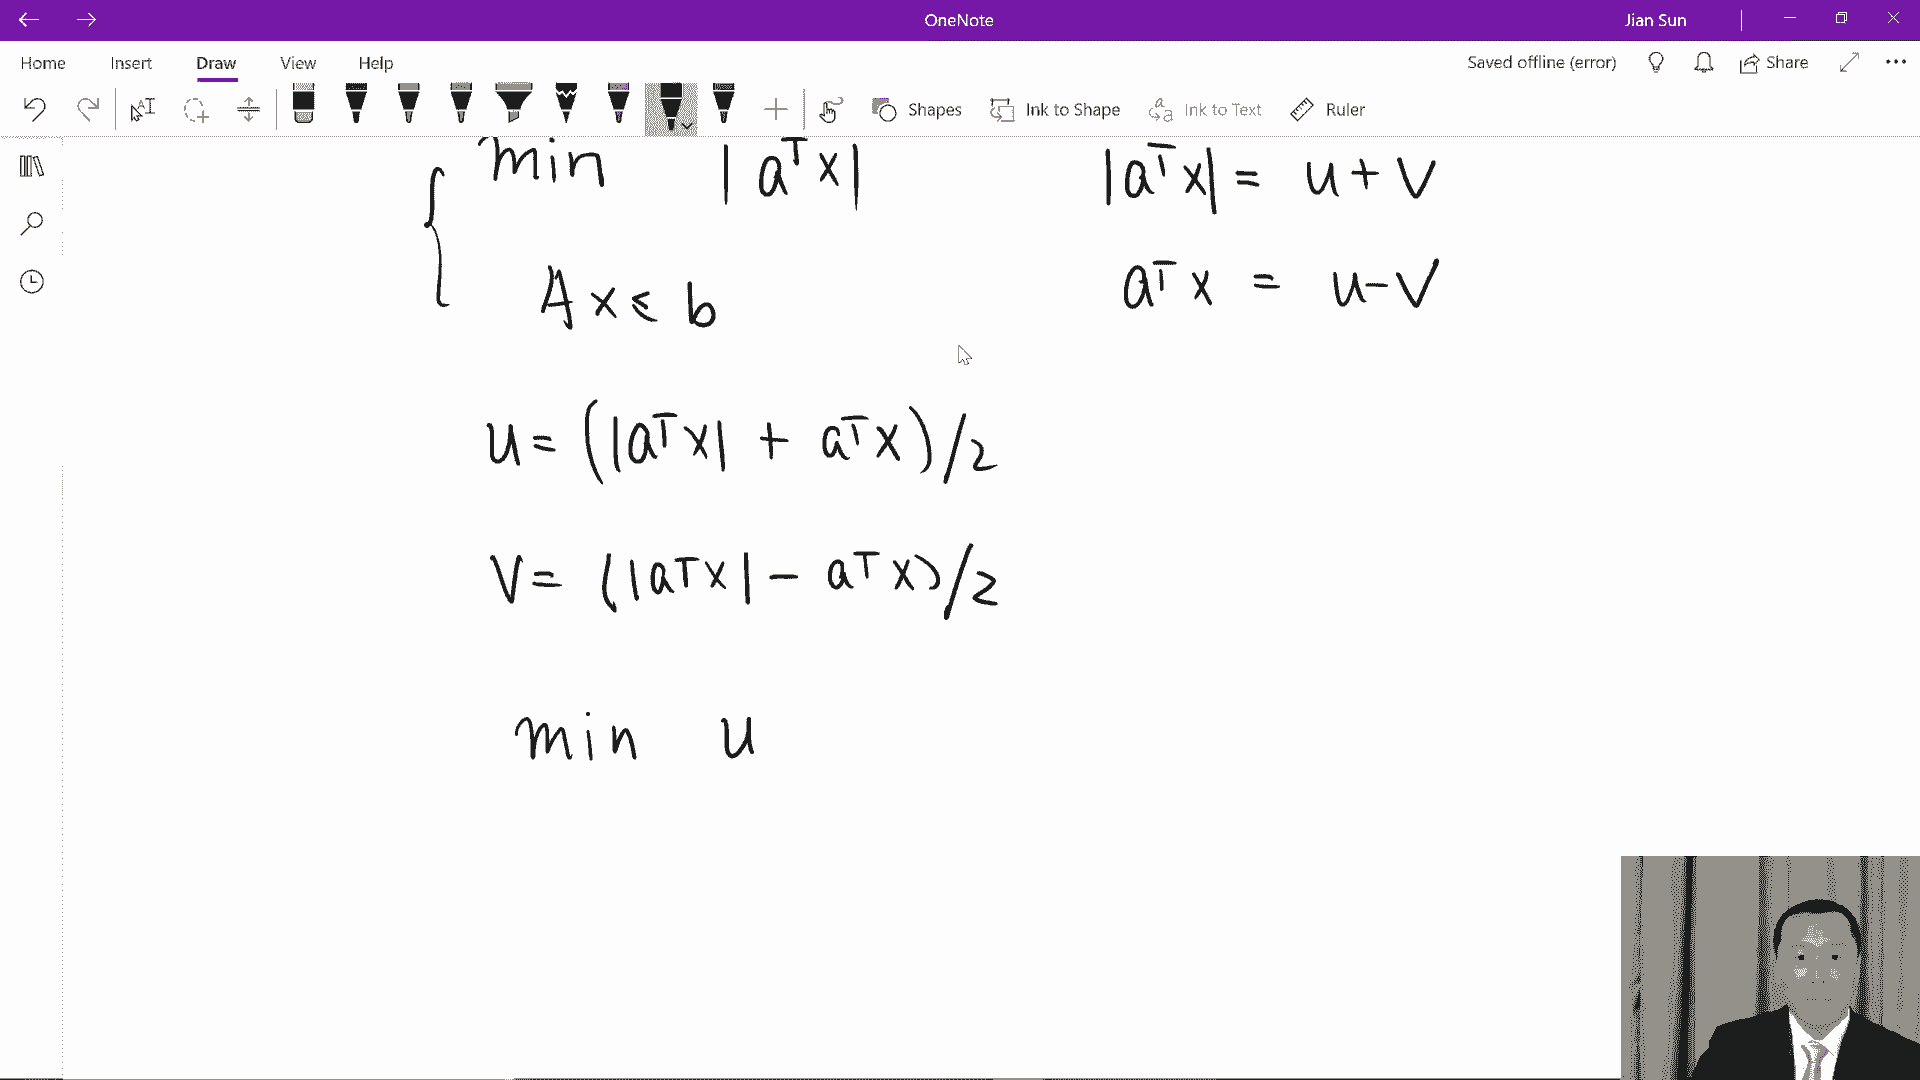 OneNote
Jian Sun
Home Insert Draw View Help
Saved offline (error)
Share
Shapes
Ink to Shape
Ink to Text
Ruler
min |aᵀx|
|aᵀx| = u + v
Ax ≤ b
aᵀx = u - v
u = (|aᵀx| + aᵀx)/2
v = (|aᵀx| - aᵀx)/2
min u